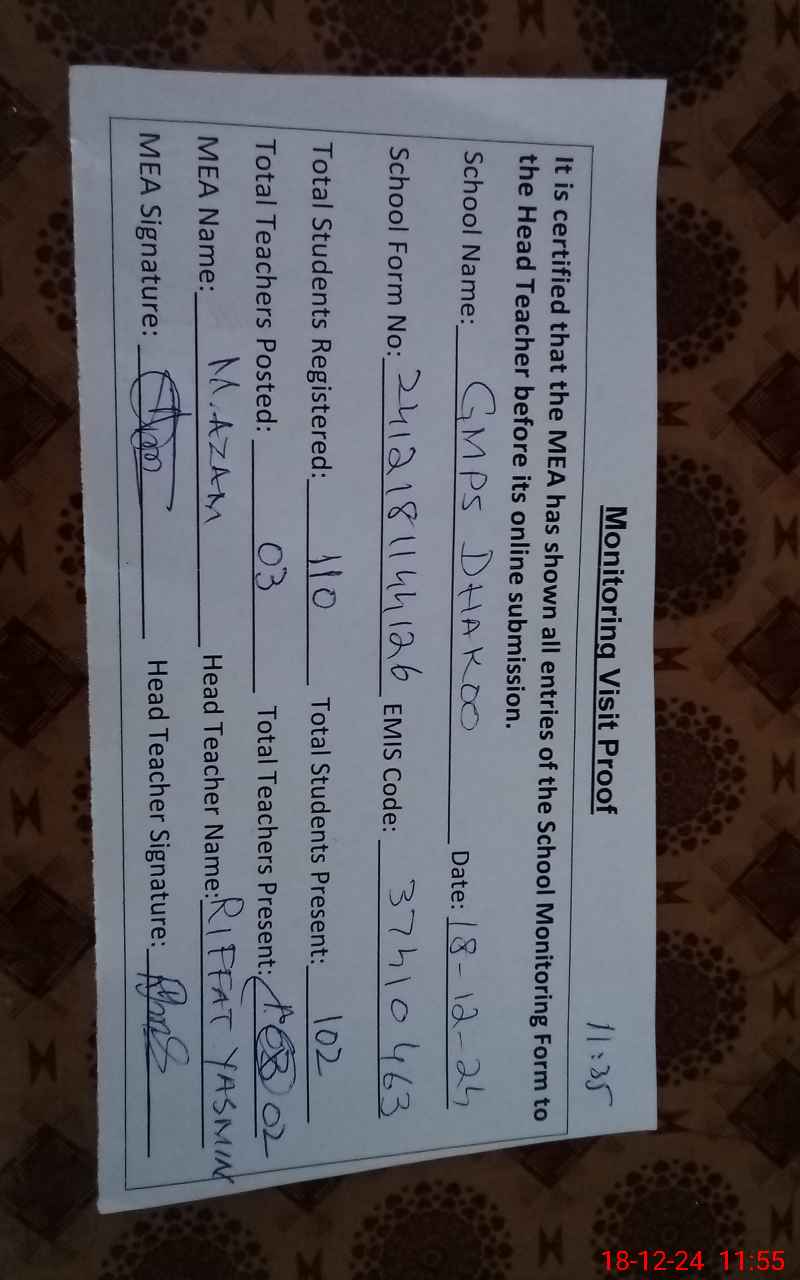 Monitoring Visit Proof
11:35
It is certified that the MEA has shown all entries of the School Monitoring Form to
the Head Teacher before its online submission.
School Name: GMPS DHAKOO Date: 18-12-24
School Form No: 2412181144126 EMIS Code: 37410463
Total Students Registered: 110 Total Students Present: 102
Total Teachers Posted: 03 Total Teachers Present: 02
MEA Name: M.AZAM Head Teacher Name: RIFFAT YASMIN
MEA Signature: Head Teacher Signature:
18-12-24 11:55